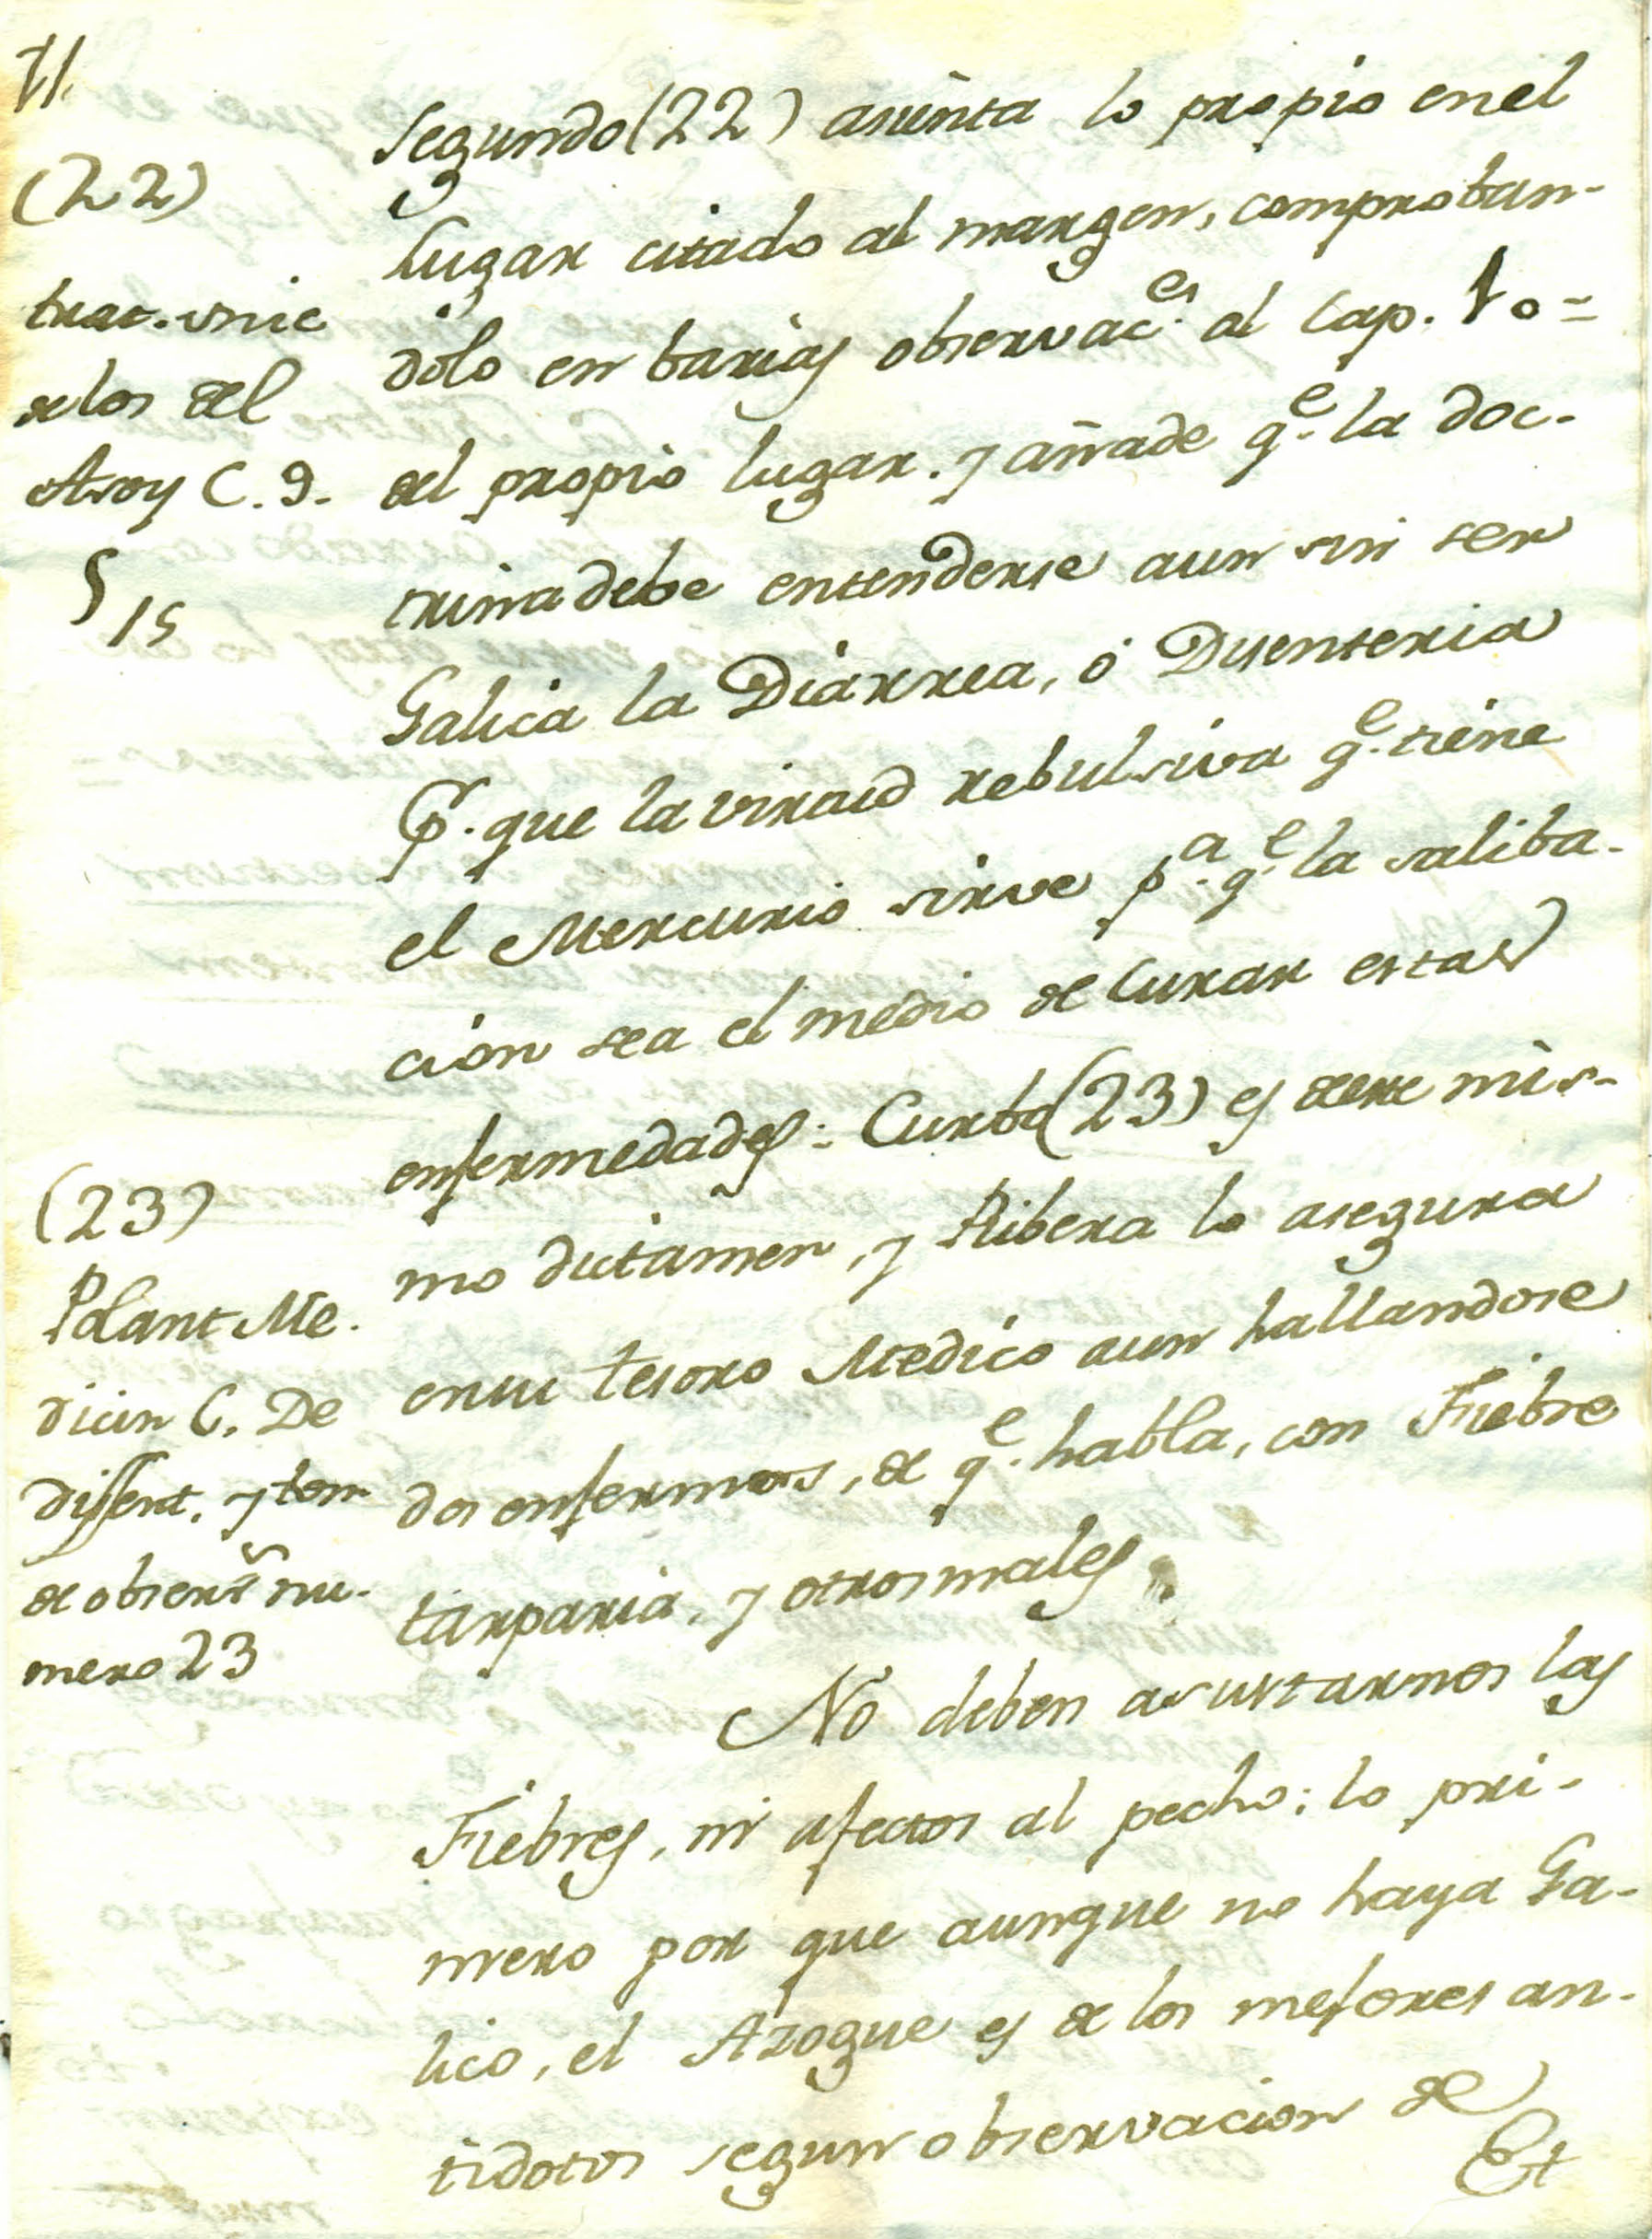 71.
(22)
trat. unic
de los del
Asoy C. 9.
§ 15
Segundo (22) asiènta lo propio en el
lugar citado al margen, comproban-
dolo en barias observac.es al Cap. 10 =
del propio lugar. y añade q.e la doc-
trina debe entenderse aun sin ser
Galica la Diarrea, ó Disenteria
P.r que la virtud rebulsiva q.e tiene
el Mercurio sirve p.a q.e la saliba-
cion sea el medio de Curar estas
enfermedades: Curbo (23) es deese mis-
mo dictamen, y Ribera lo asegura
ensu tesoro Medico aun hallandose
dos enfermos, de q.e habla, con Fiebre
tarparia, y otros males.
(23)
Polant Me.
dicin C. De
dissent. y tom
de obser.s nu.
mero 23
No deben asustarnos las
Fiebres, ni afectos al pecho; lo pri-
mero por que aunque no haya Ga-
lico, el Azogue es de los mejores an-
tidotos segun observacion de
Et